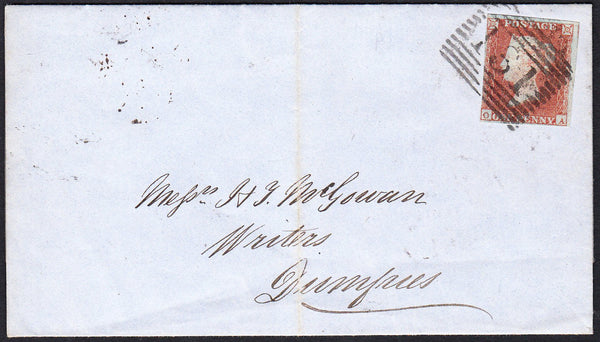 POSTAGE
ONE PENNY
O A
Messrs H & J. McGowan
Writers
Dumfries